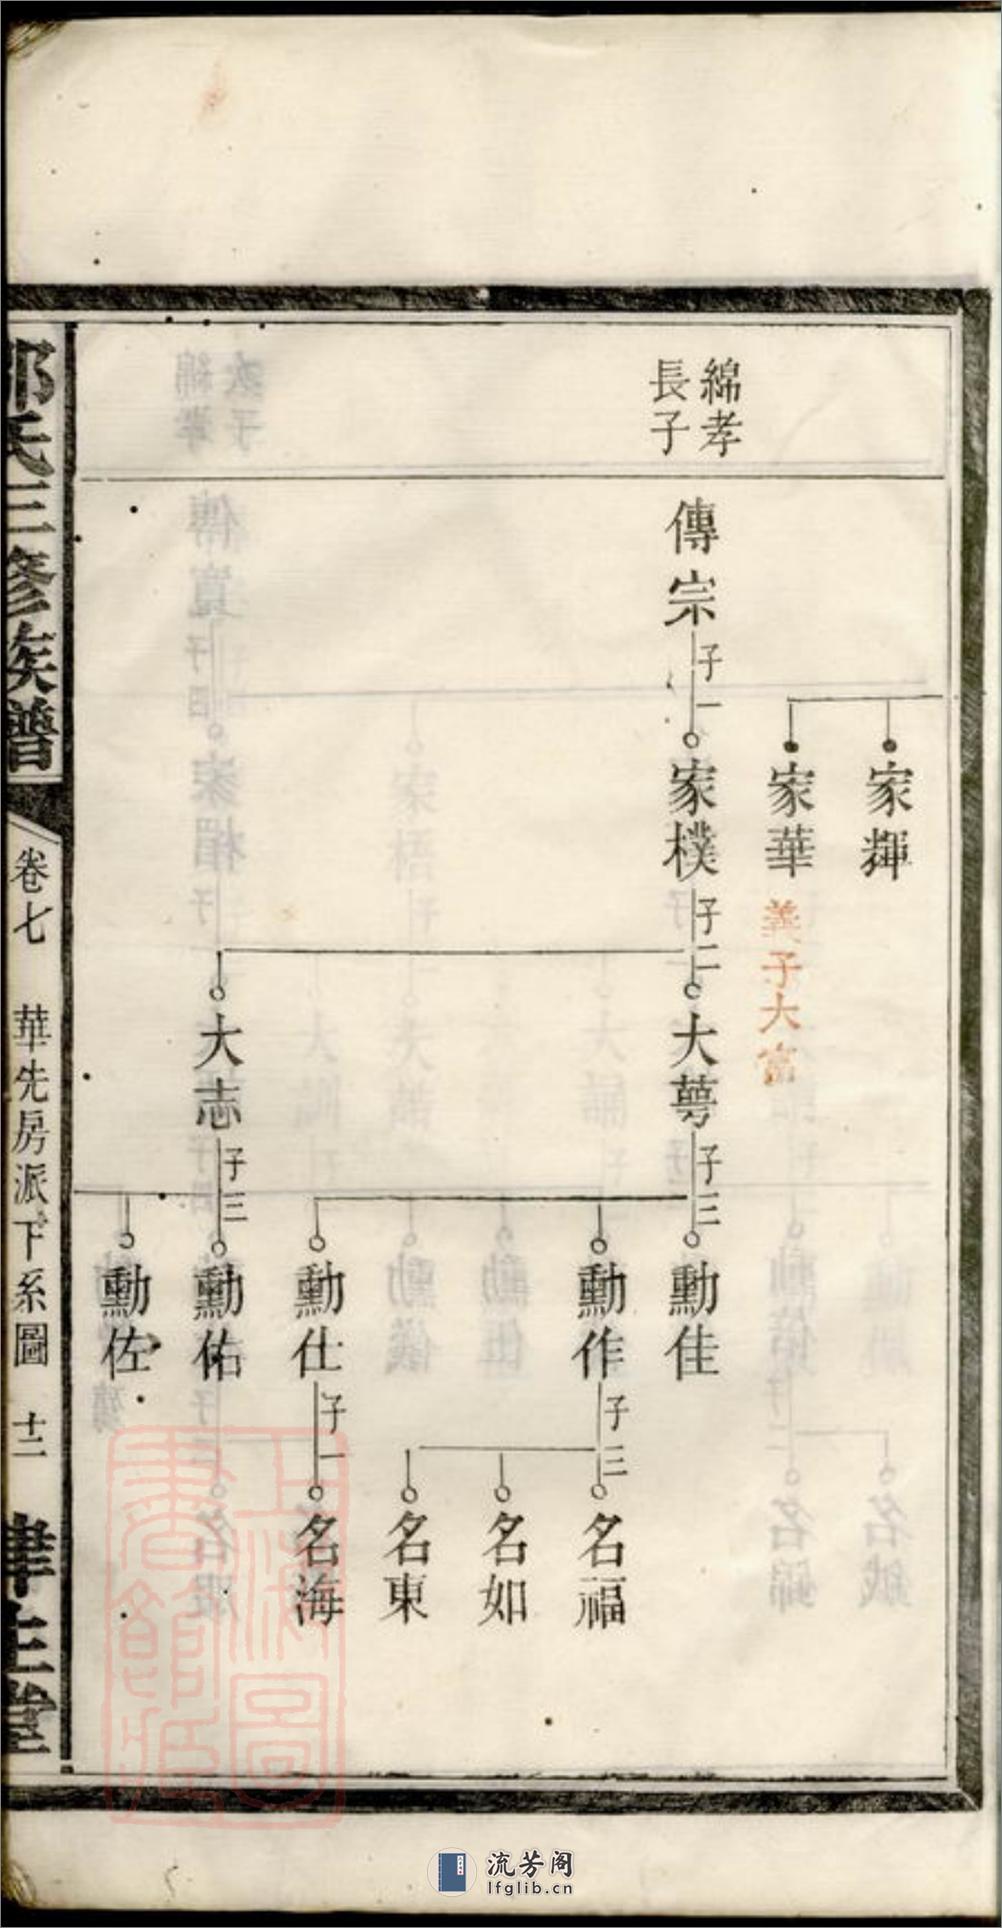 綿孝
長子
傳宗
子一
家輝
家華
義子大富
家樸
子二
大萼
子三
大志
子三
勳佳
勳作
子三
勳仕
子一
勳佑
勳佐
名福
名如
名東
名海
氏三修族譜
卷七
華先房派下系圖
十二
上海圖書館藏
流芳阁
lfglib.cn